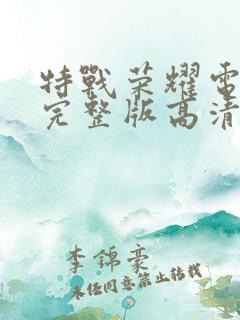 特戰荣耀雷
完整版高清
李錦豪
未经同意禁止转载